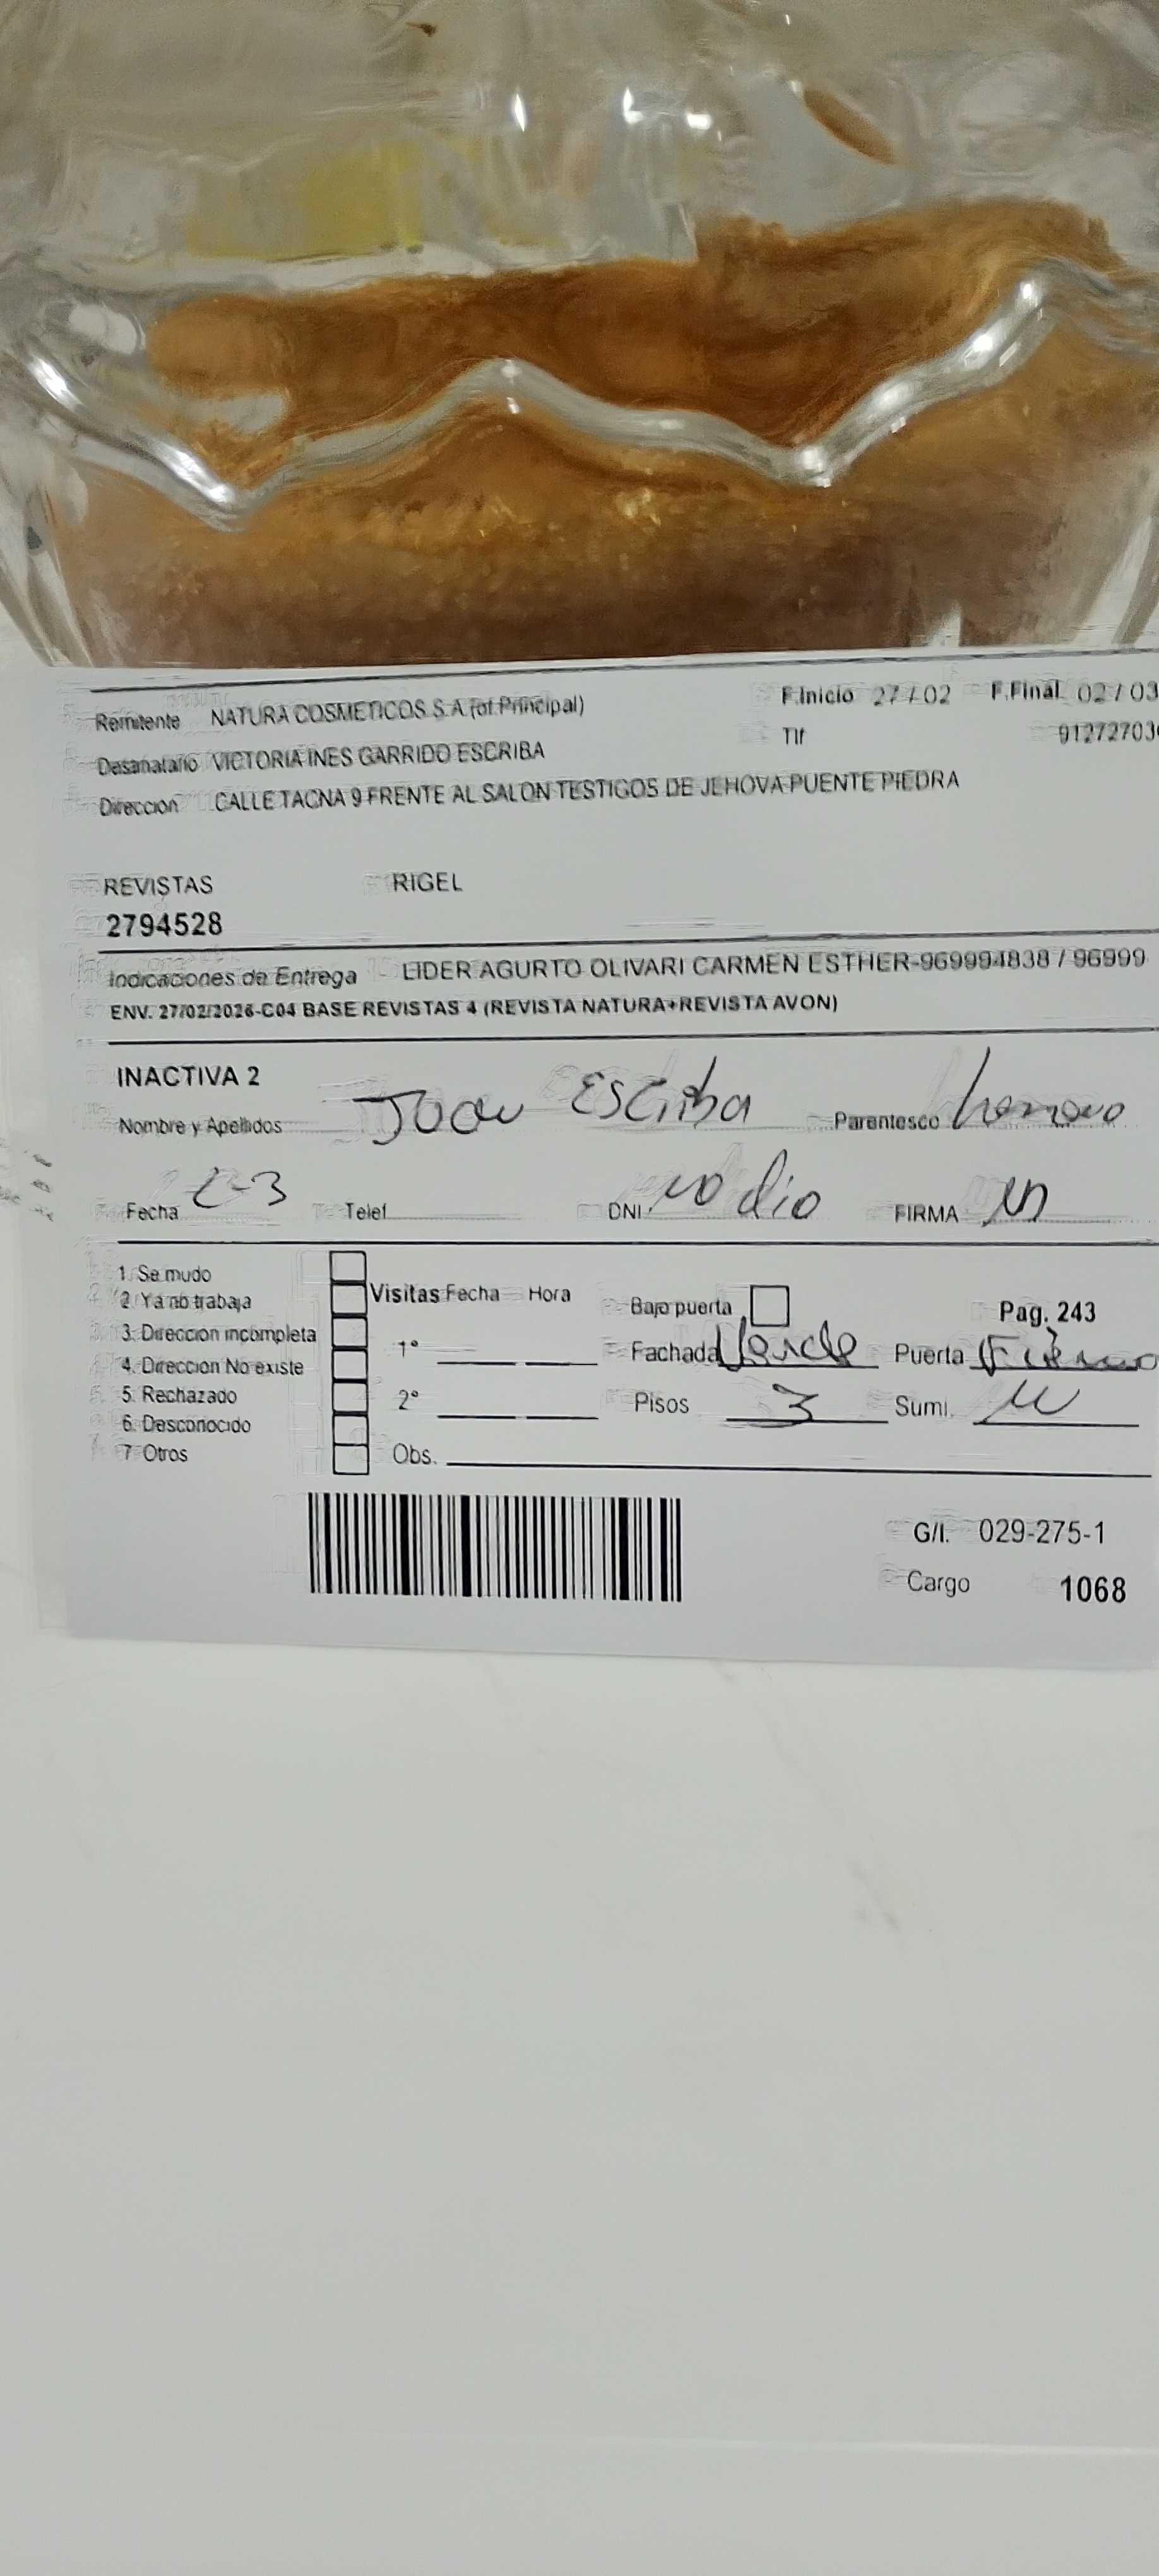 Remitente NATURA COSMETICOS S.A (of.Principal) F.Inicio 27/02 F.Final 02/03
VICTORIA INES GARRIDO ESCRIBA Tlf 91272703
Direccion CALLE TACNA 9 FRENTE AL SALON TESTIGOS DE JEHOVA-PUENTE PIEDRA
REVISTAS RIGEL
2794528
Indicaciones de Entrega LIDER AGURTO OLIVARI CARMEN ESTHER-969994838 / 96999
ENV. 27/02/2026-C04 BASE REVISTAS 4 (REVISTA NATURA+REVISTA AVON)
INACTIVA 2
Nombre y Apellidos Juan Escriba Parentesco hermano
Fecha 2-3 Telef DNI no dio FIRMA
1. Se mudo
2. Ya no trabaja Visitas Fecha Hora Bajo puerta Pag. 243
3. Direccion incompleta 1° Fachada Verde Puerta Fierro
4. Direccion No existe
5. Rechazado 2° Pisos 3 Sumi.
6. Desconocido
7 Otros Obs.
G/I. 029-275-1
Cargo 1068